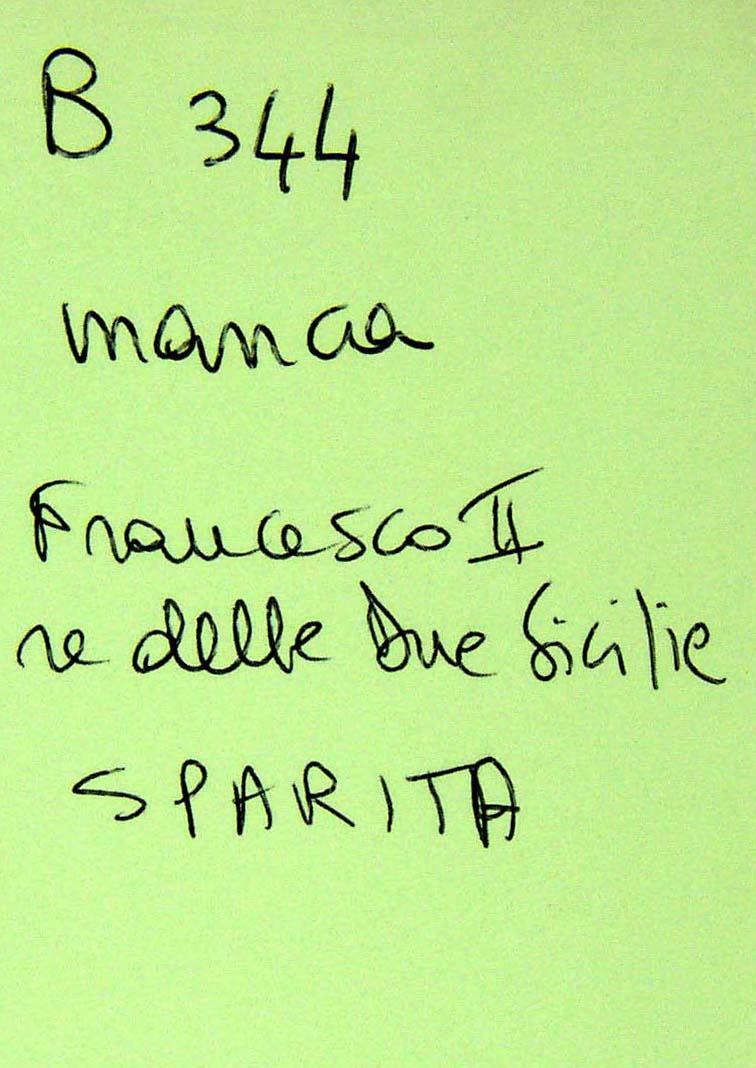 B 344
manca
Francesco II
re delle Due Sicilie
SPARITA